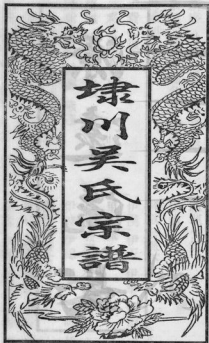 埭川吴氏宗譜